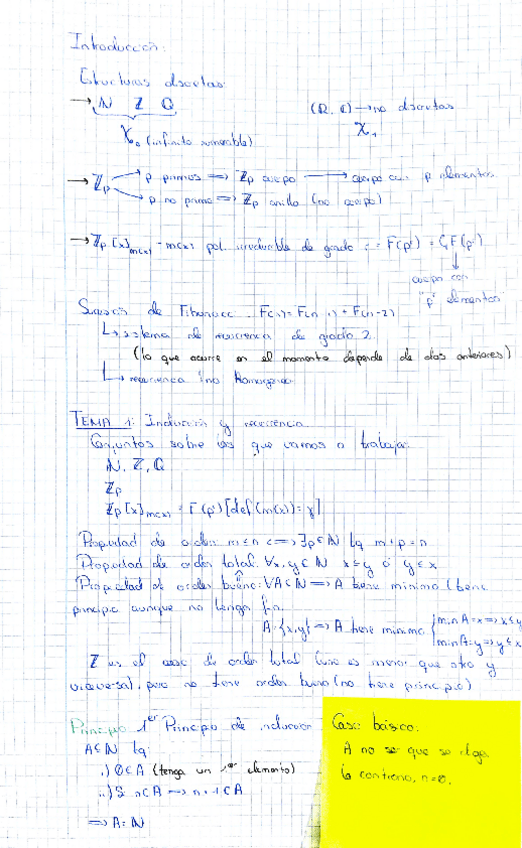 Introducción:
Estructuras discretas:
→ N Z Q (R, C) → no discretas
ℵ₀ (infinito numerable) ℵ₁
→ Zp → p primos ⟹ Zp cuerpo → cuerpo con p elementos
→ p no primo ⟹ Zp anillo (no cuerpo)
→ Zp[x]m(x) - m(x) pol. irreducible de grado
cuerpo con
elementos
Sucesión de Fibonacci F(n) = F(n-1) + F(n-2)
↳ sistema de recurrencia de grado 2
(lo que ocurre en el momento depende de dos anteriores)
↳ recurrencia
TEMA 1: Inducción y recurrencia
Conjuntos sobre los que vamos a trabajar
N, Z, Q
Zp
Zp[x]m(x)
Propiedad de orden m ≤ n ⟺ ∃p ∈ N tq m + p = n
Propiedad de orden total: ∀x, y ∈ N x ≤ y ó y ≤ x
Propiedad de orden bueno: ∀A ⊂ N ⟹ A tiene mínimo (tiene
principio aunque no tenga fin
A = {x,y} ⟹ A tiene mínimo { min A = x ⟹ x ≤ y
min A = y ⟹ y ≤ x
Z es el caso de orden total (uno es menor que otro y
viceversa), pero no tiene orden bueno (no tiene principio)
Principio 1er Principio de inducción
A ⊂ N tq
.) 0 ∈ A (tenga un 1er elemento)
..) Si n ∈ A ⟶ n+1 ∈ A
⟹ A = N
Caso básico:
A no ser que se diga
lo contrario, n=0.